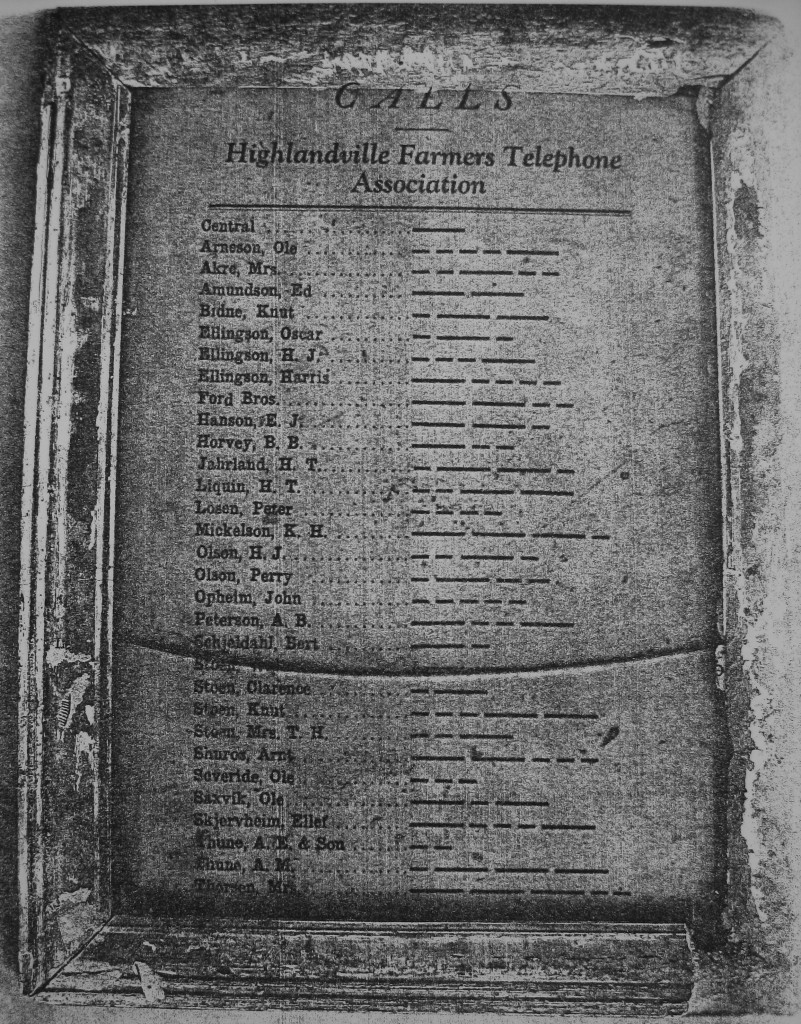 CALLS
Highlandville Farmers Telephone
Association
Central
Arneson, Ole
Akre, Mrs.
Amundson, Ed
Bidne, Knut
Ellingson, Oscar
Ellingson, H. J.
Ellingson, Harris
Ford Bros.
Hanson, E. J.
Horvey, B. B.
Jahrland, H. T.
Liquin, H. T.
Losen, Peter
Mickelson, K. H.
Olson, H. J.
Olson, Perry
Opheim, John
Peterson, A. B.
Schjeldahl, Bert
Stoen,
Stoen, Clarence
Stoen, Knut
Stoen, Mrs. T. H.
Shuros, Arnt
Severide, Ole
Saxvik, Ole
Skjervheim, Ellef
Thune, A. E. & Son
Thune, A. M.
Thorsen, Mrs.